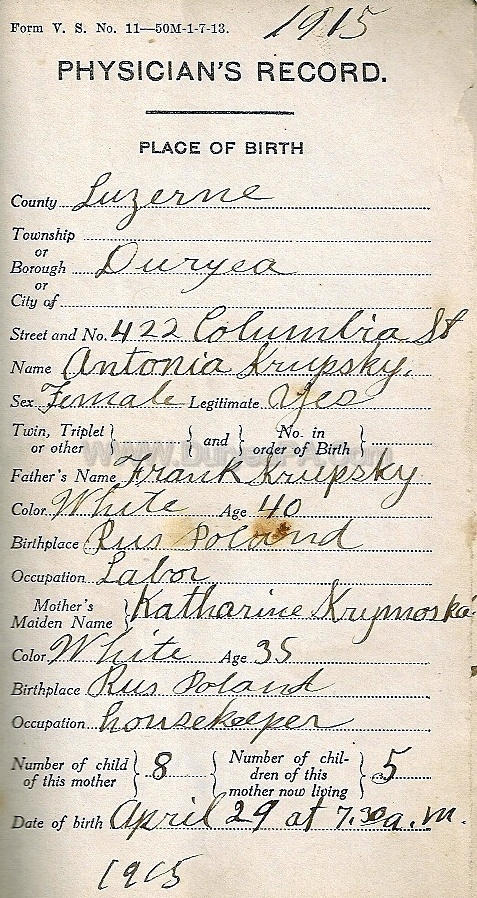 Form V. S. No. 11—50M-1-7-13. 1915
PHYSICIAN'S RECORD.
PLACE OF BIRTH
County Luzerne
Township
or
Borough Duryea
or
City of
Street and No. 422 Columbia St
Name Antonia Krupsky.
Sex Female Legitimate Yes
Twin, Triplet or other } { and { No. in order of Birth }
Father's Name Frank Krupsky
Color White Age 40
Birthplace Rus Poland
Occupation Labor
Mother's Maiden Name } Katharine Krymoska
Color White Age 35
Birthplace Rus Poland
Occupation housekeeper
Number of child of this mother } 8 { Number of children of this mother now living } 5
Date of birth April 29 at 7.30 a.m.
1915